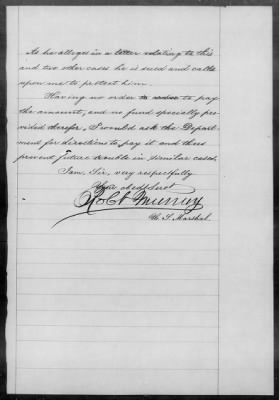 As he alleges in a letter relating to this
and two other cases he is sued and calls
upon me to protect him.
Having no order to pay
the amount, and no fund specially pro-
vided therefor, I would ask the Depart-
ment for directions to pay it and thus
prevent future trouble in similar cases.
I am, Sir, very respectfully
Your obedt Servt
Robt Murray
U. S. Marshal